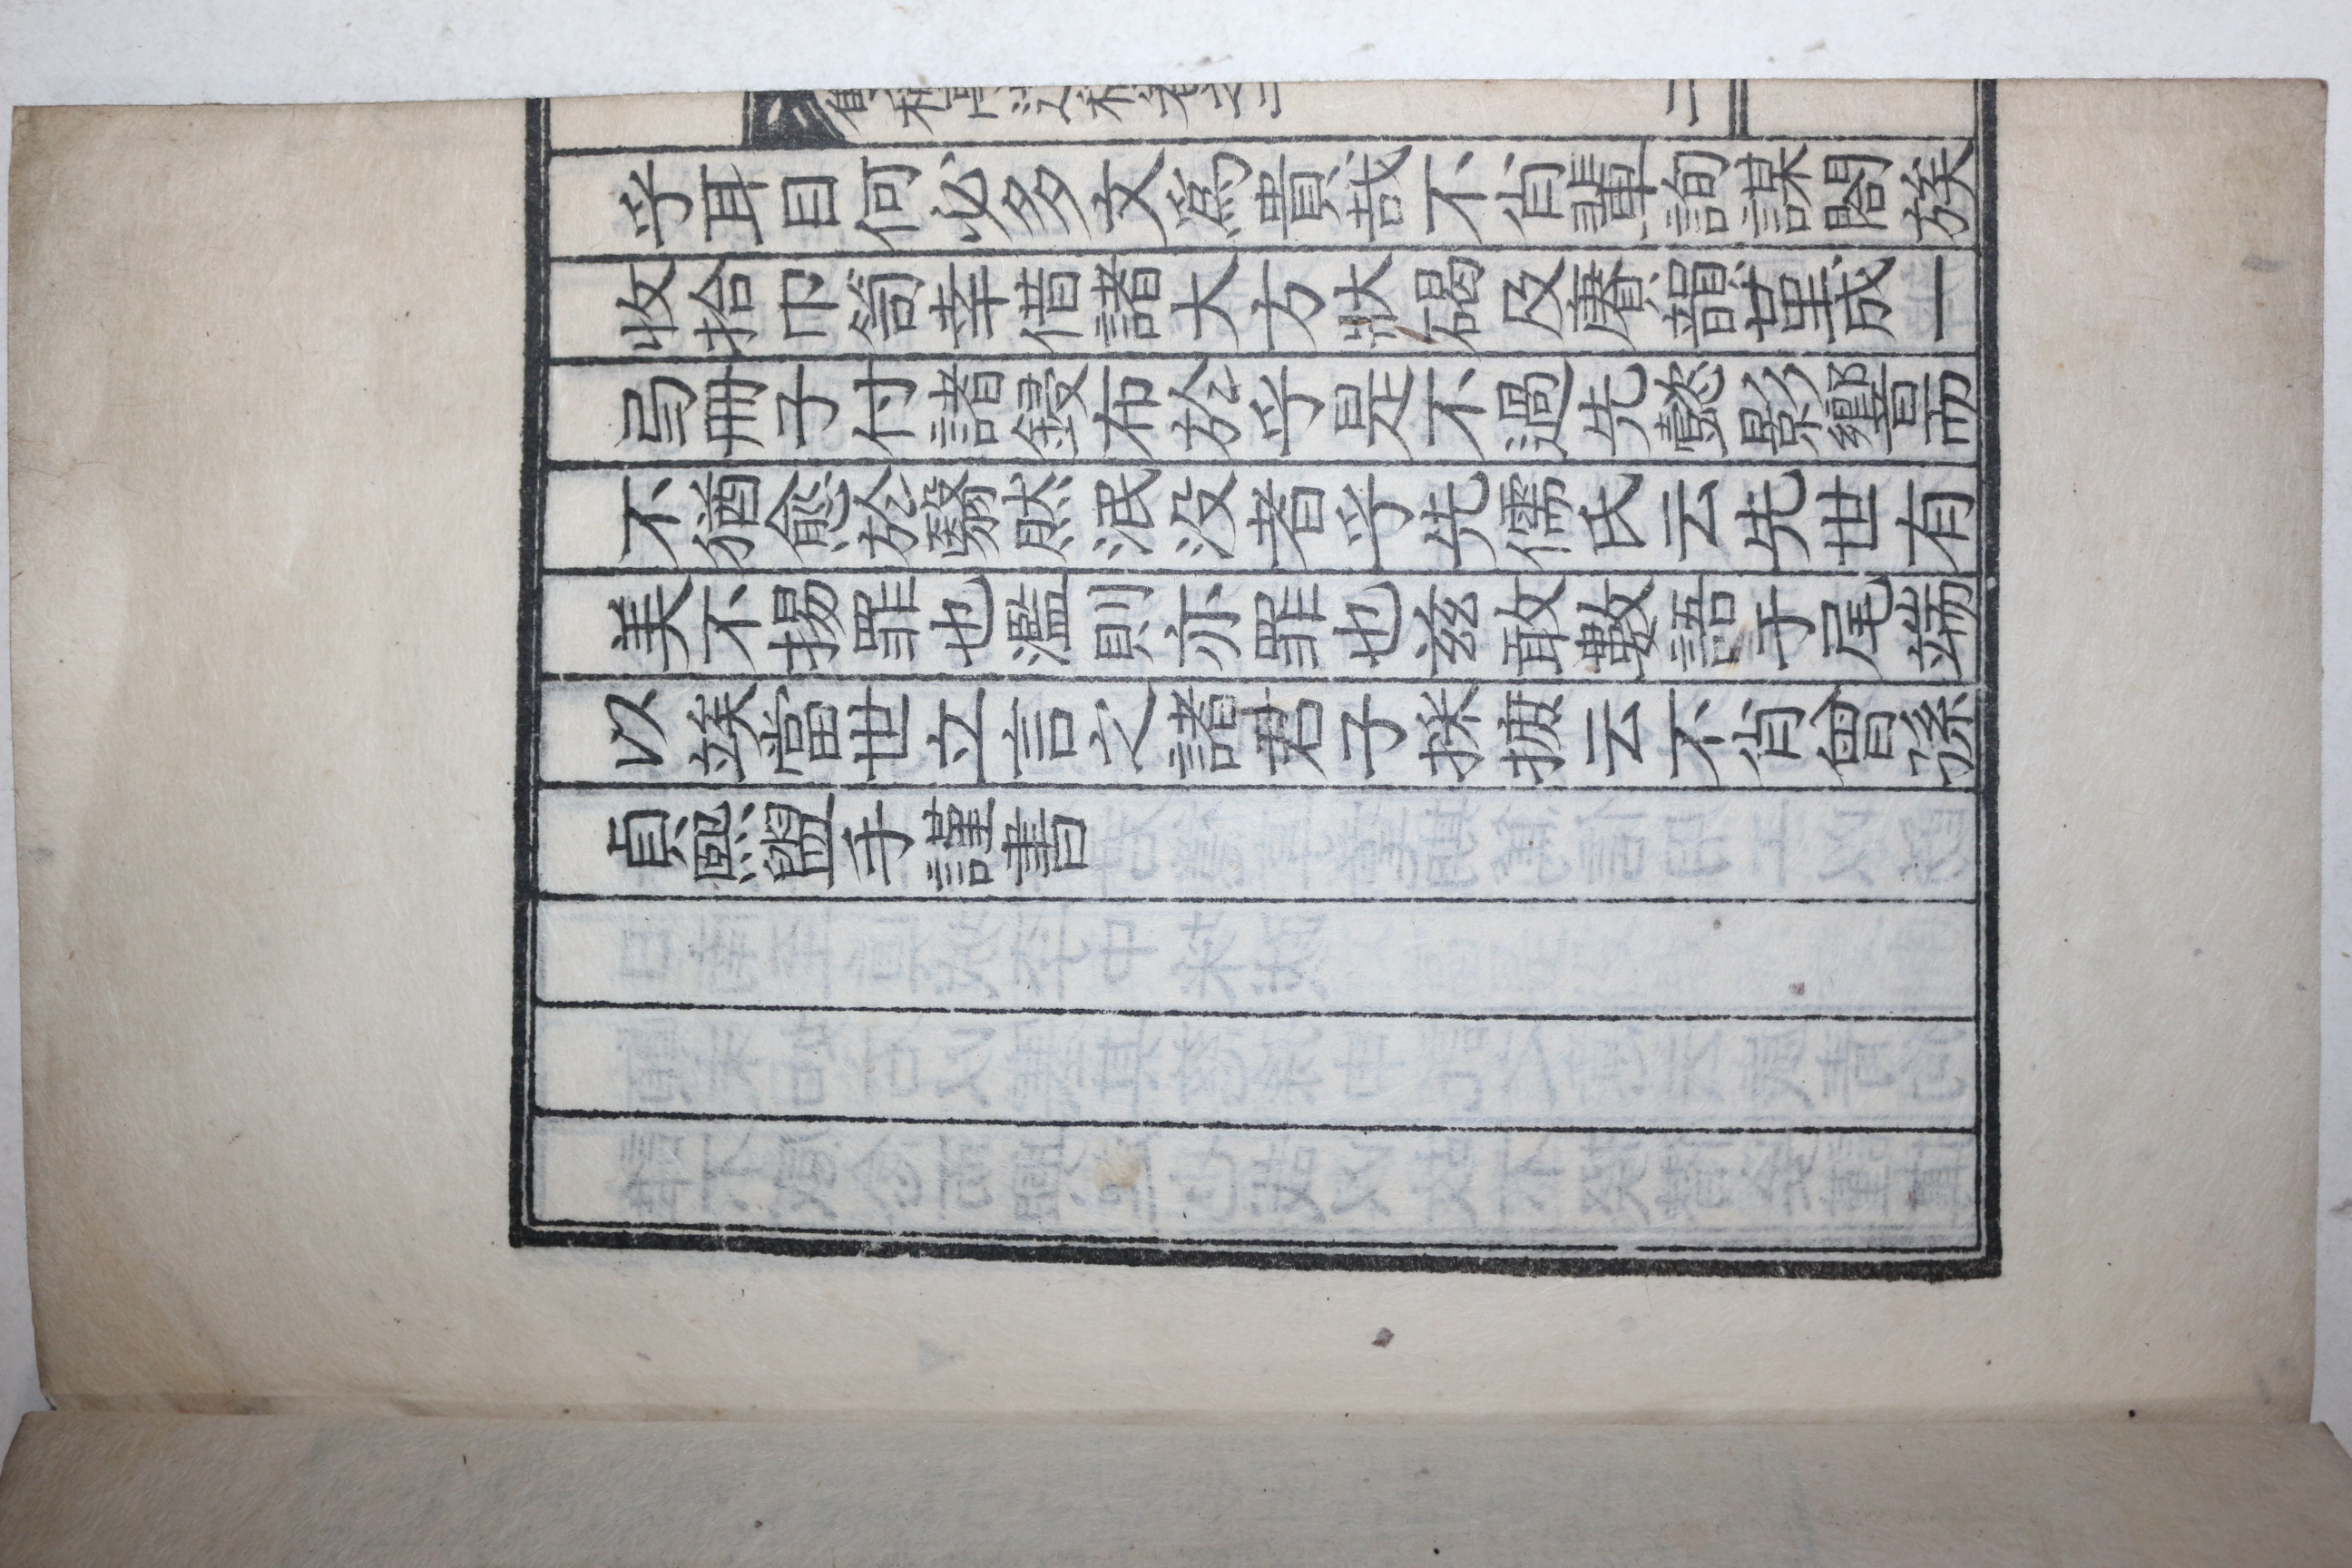 乎耳目何必多文爲貴哉不肖輩詢謀閤族
收拾巾笥幸借諸大方狀碣及賡韻菫成一
弓冊子付諸鋟布於乎是不過先懿影響而
不猶愈於翳然泯没者乎先儒氏云先世有
美不揚罪也濫則亦罪也兹敢數語于尾端
以竢當世立言之諸君子採摭云不肖曾孫
貞熙盥手謹書